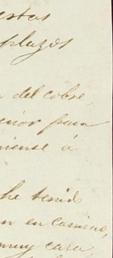 estas
plazos
del cobre,
rior para
niense á
he tenid
n en camino,
muy cara